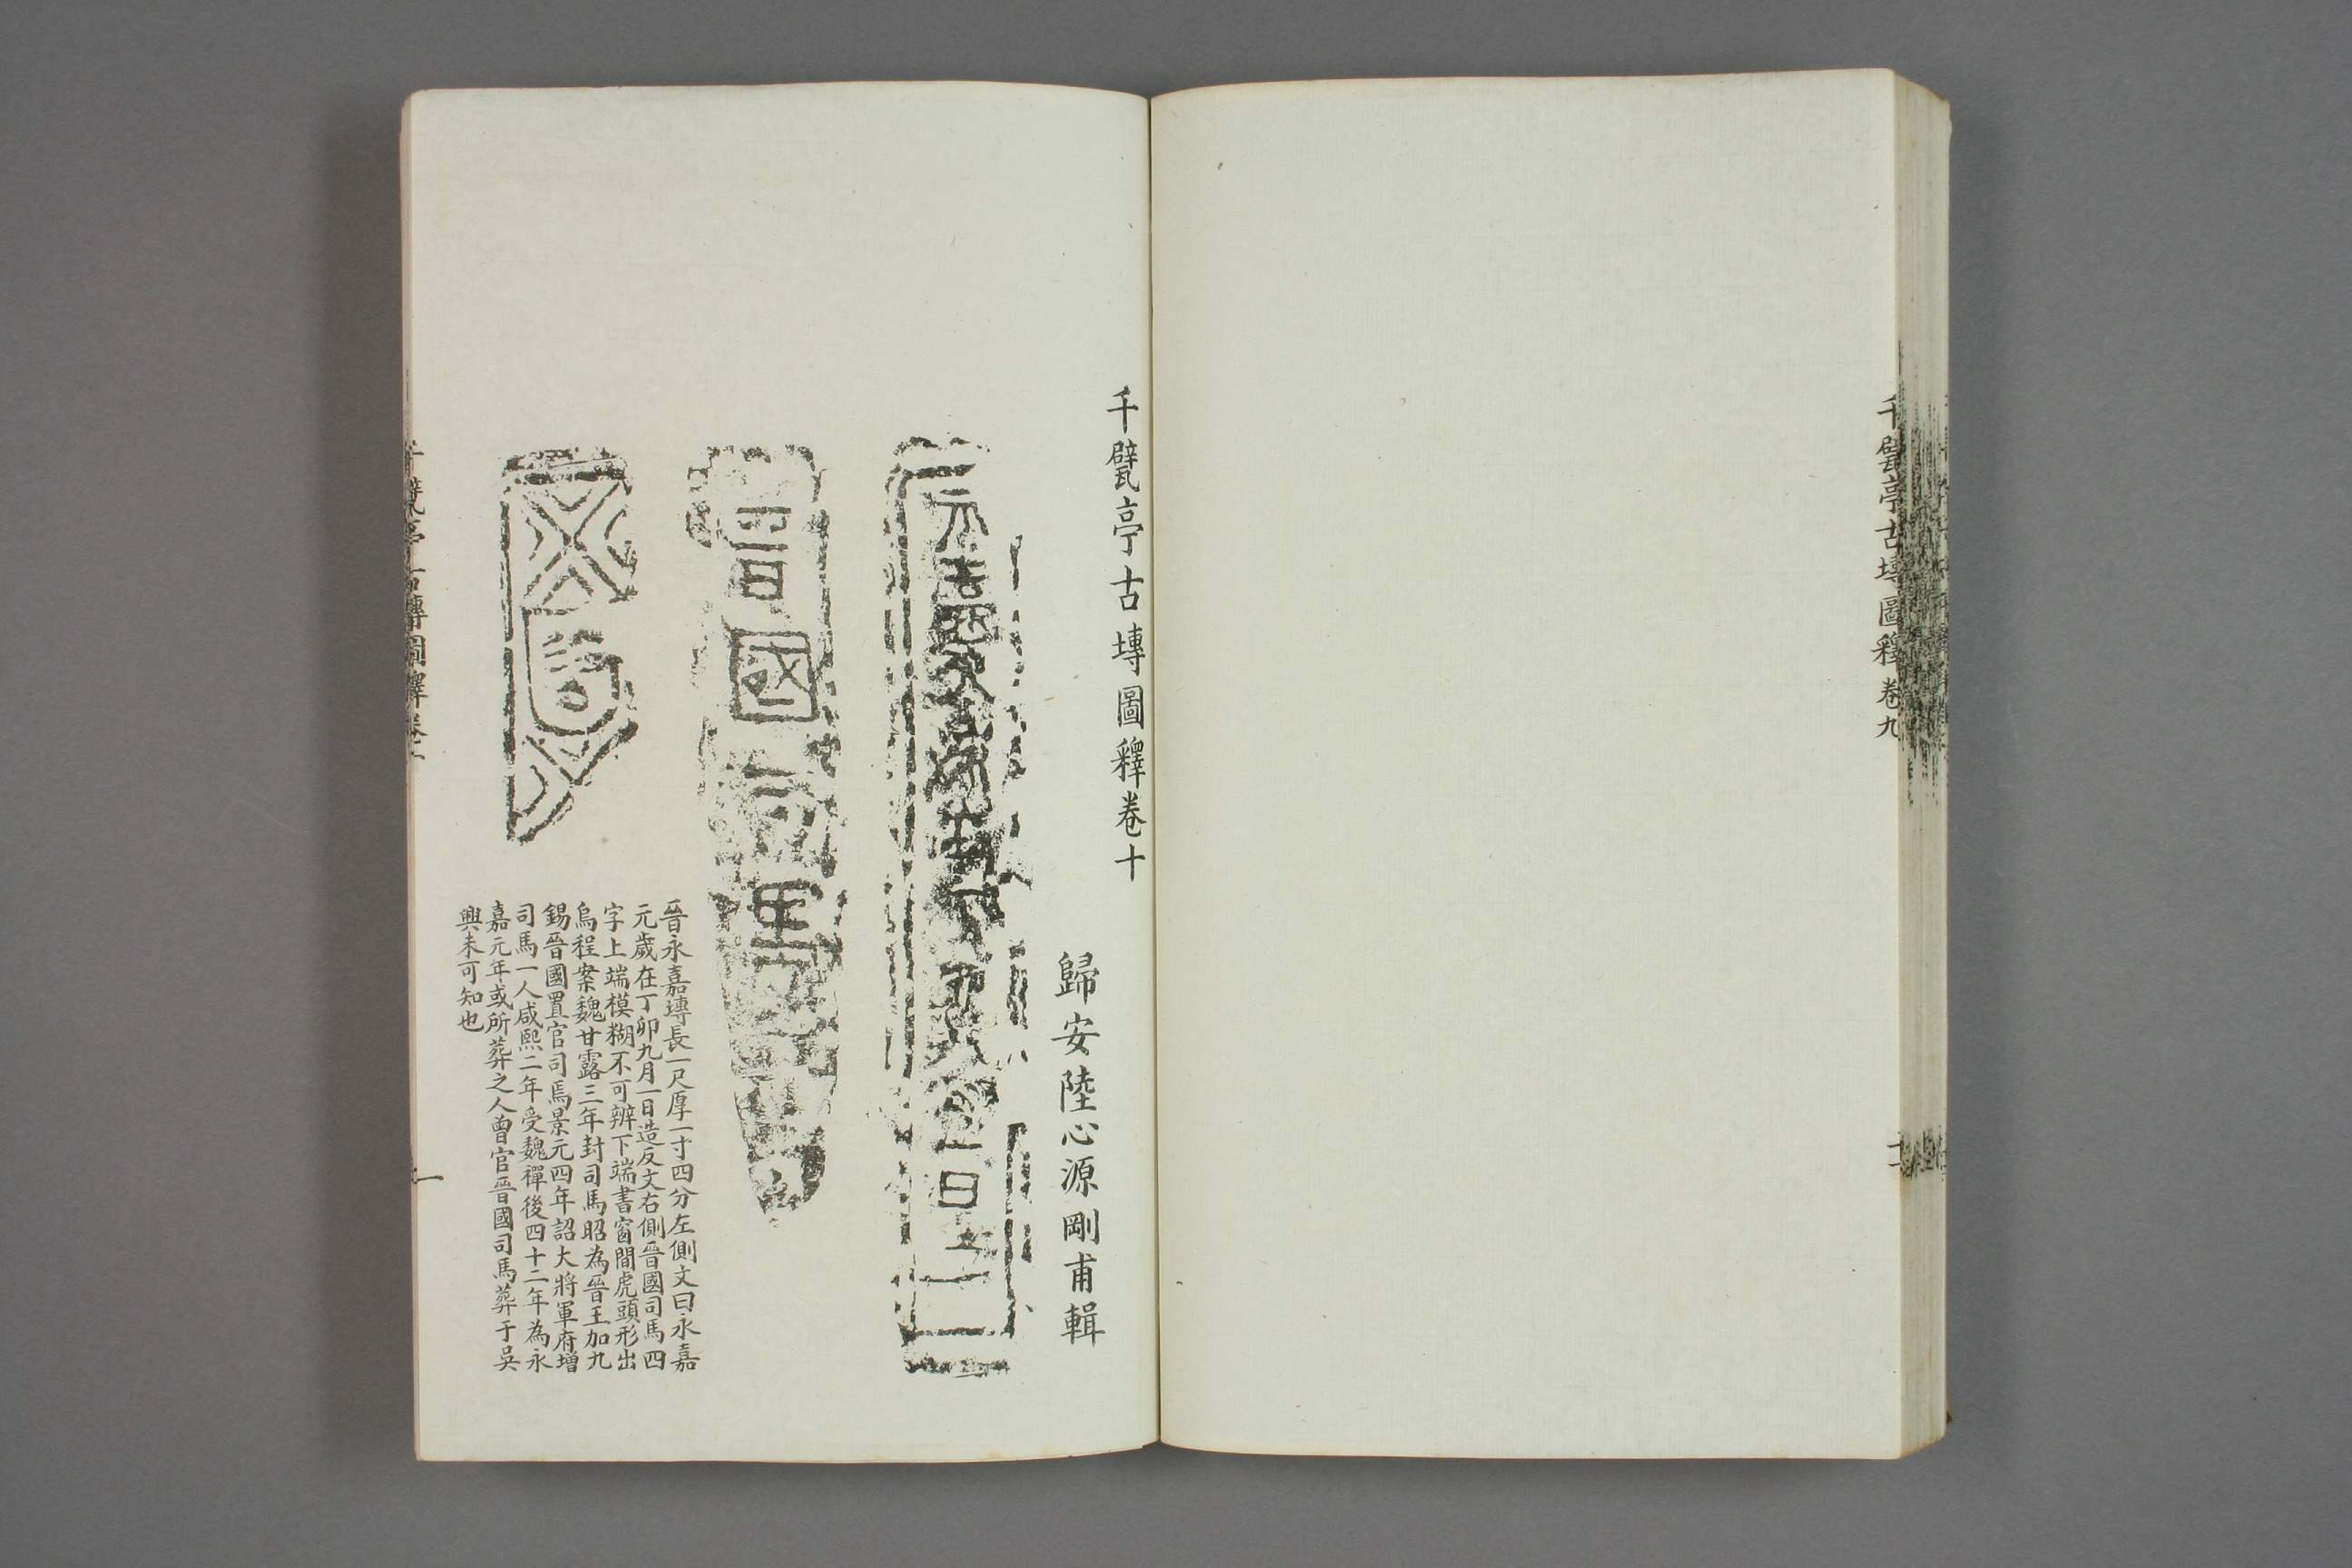 千甓亭古塼圖釋卷九
千甓亭古塼圖釋卷十
歸安陸心源剛甫輯
晉國司馬
晉永嘉塼長一尺厚一寸四分左側文曰永嘉
元歲在丁卯九月一日造反文右側晉國司馬四
字上端模糊不可辨下端書窗間虎頭形出
烏程案魏甘露三年封司馬昭為晉王加九
錫晉國置官司焉景元四年詔大將軍府增
司馬一人咸熙二年受魏禪後四十二年為永
嘉元年或所葬之人曾官晉國司馬葬于吳
興未可知也
千甓亭古塼圖釋卷十
一